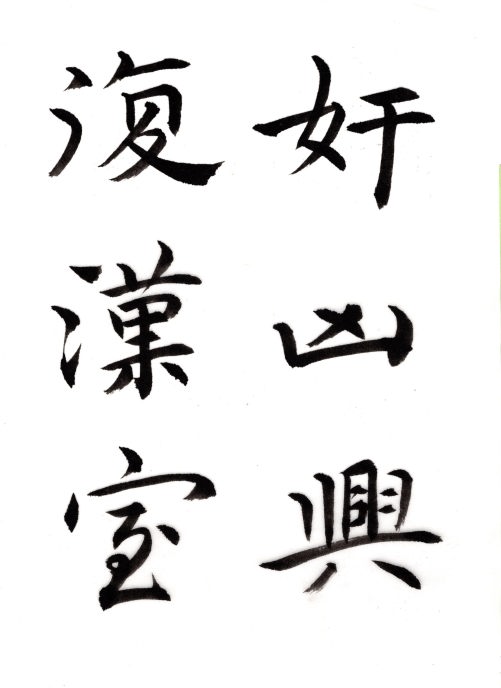 奸凶興
復漢室